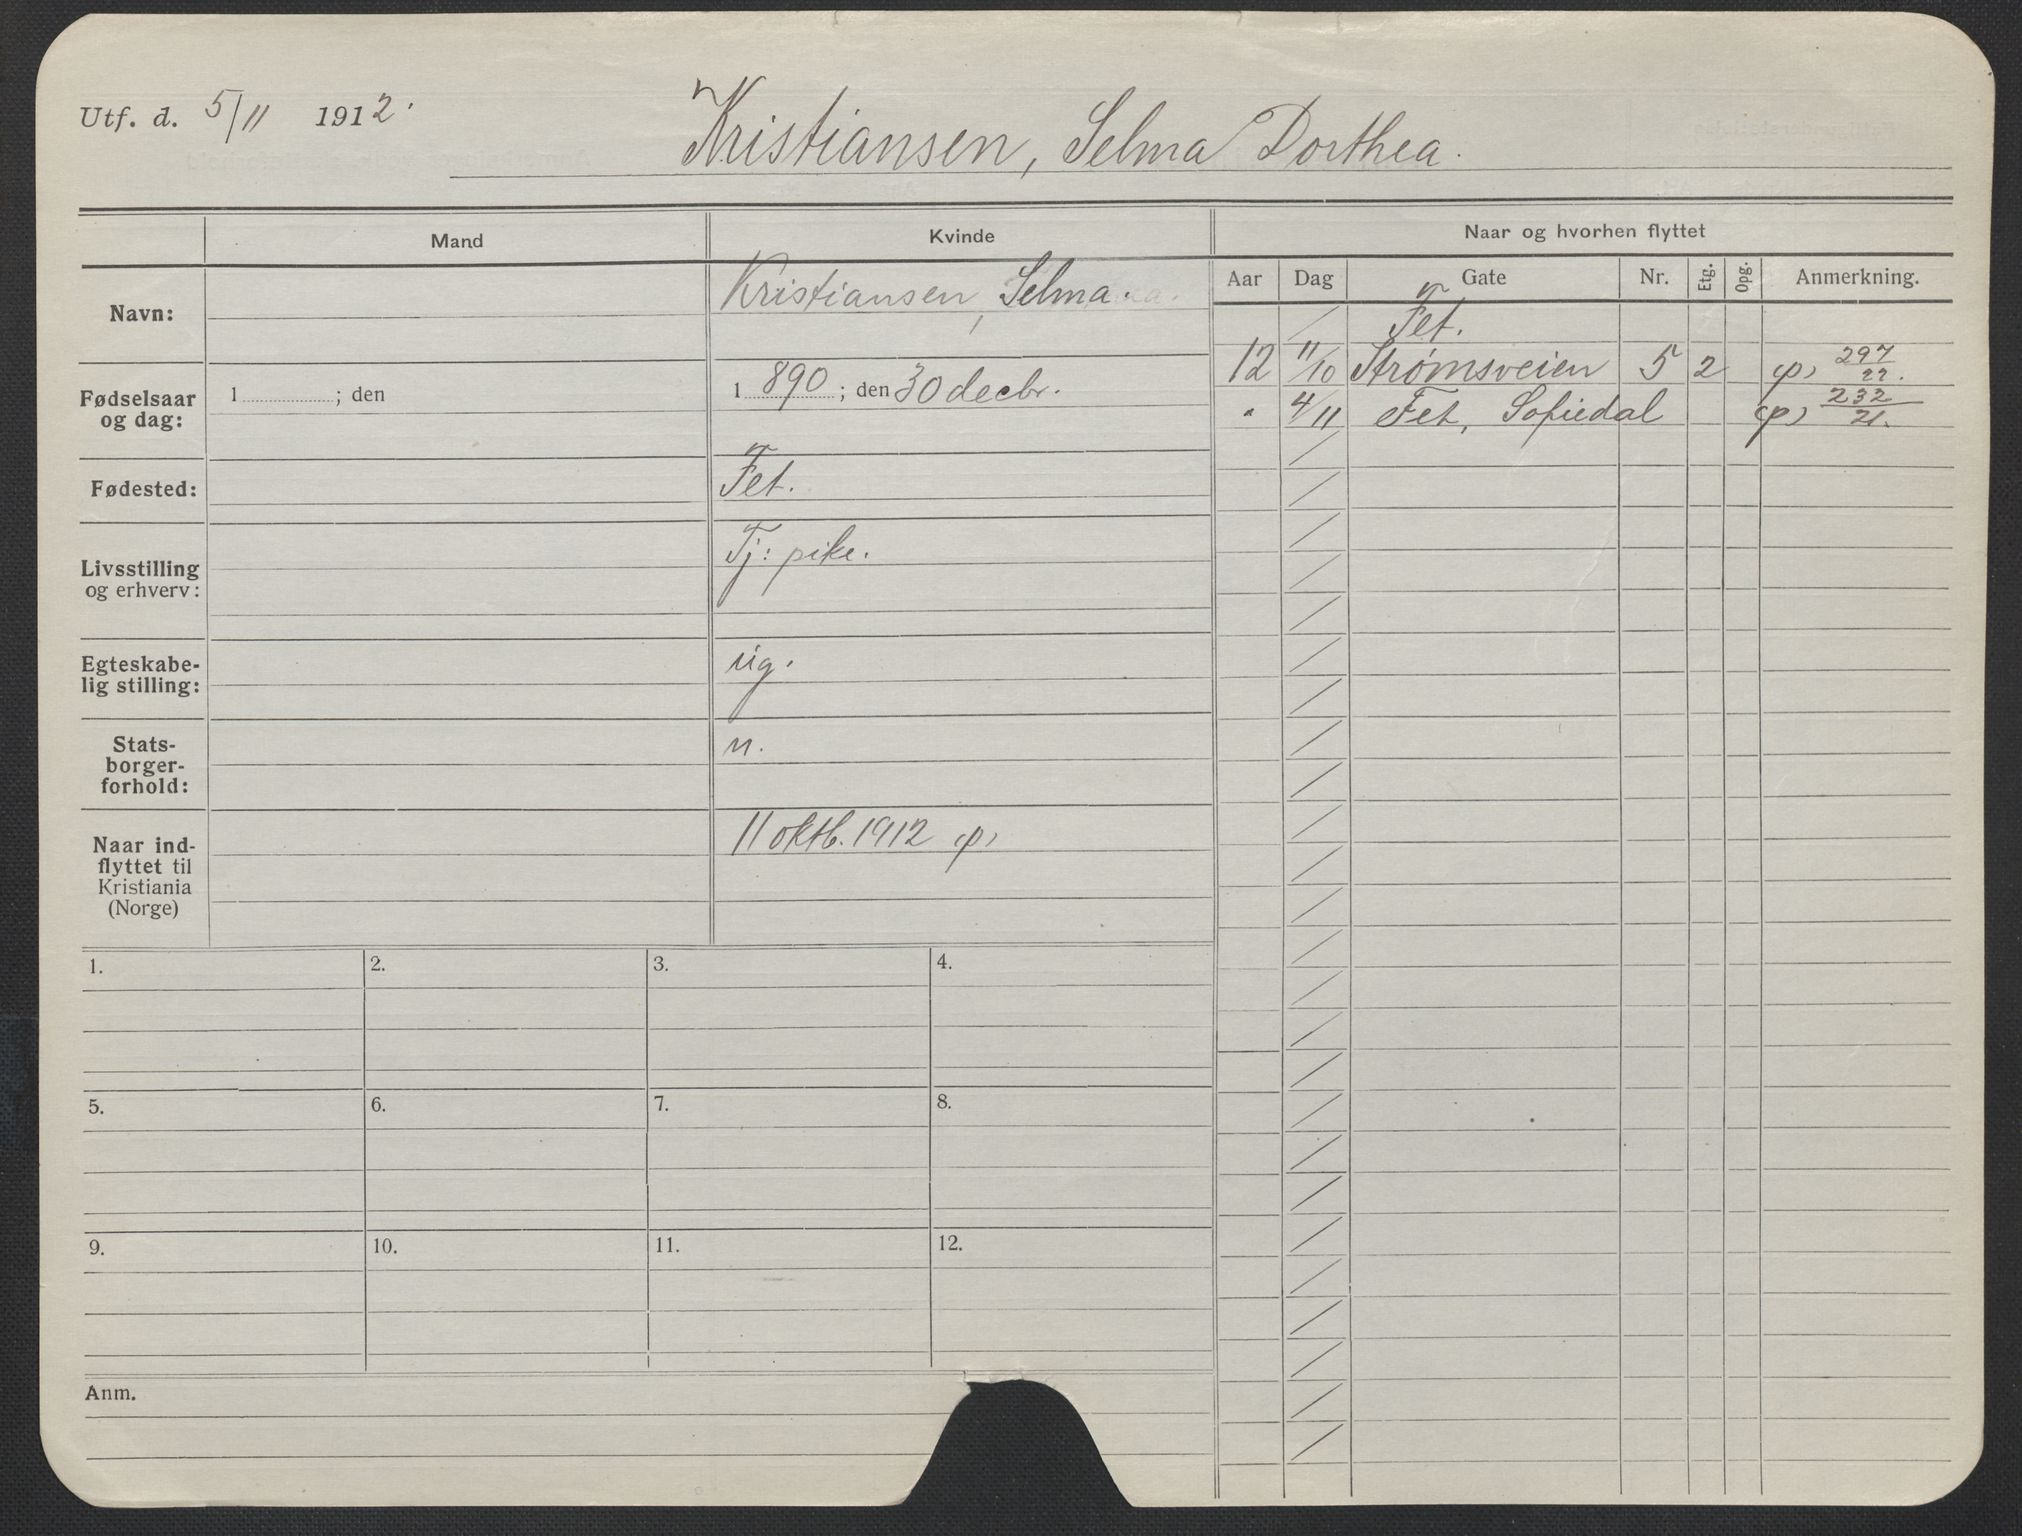 Utf. d. 5/11 1912.
Kristiansen, Selma Dorthea.
Mand
Kvinde
Naar og hvorhen flyttet
Aar Dag Gate Nr. Etg. Opg. Anmerkning.
Navn:
Kristiansen, Selma.
Fet.
12 11/10 Strømsveien 5 2 (p) 297/22.
" 4/11 Fet, Sofiedal (p) 232/21.
Fødselsaar
og dag:
1 ; den
1890; den 30 decbr.
Fødested:
Fet.
Livsstilling
og erhverv:
Tj: pike.
Egteskabe-
lig stilling:
ug.
Stats-
borger-
forhold:
n.
Naar ind-
flyttet til
Kristiania
(Norge)
11 oktb. 1912 (p)
1. 2. 3. 4.
5. 6. 7. 8.
9. 10. 11. 12.
Anm.